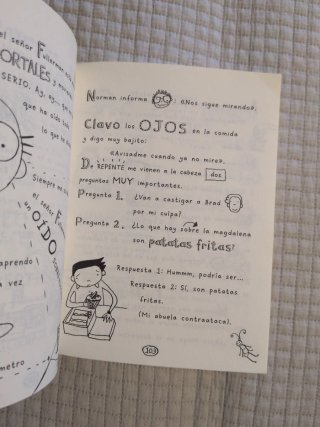 el señor Fullerman
MORTALES y
SERIO. Ay, ay,
que ha oído
lo que he
Siempre
el señor
un OÍDO
aprendo
a vez
metro
Norman informa : «Nos sigue mirando».
Clavo los OJOS en la comida
y digo muy bajito:
«Avisadme cuando ya no mire».
De REPENTE me vienen a la cabeza dos
preguntas MUY importantes.
Pregunta 1. ¿Van a castigar a Brad
por mi culpa?
Pregunta 2. ¿Lo que hay sobre la magdalena
son patatas fritas?
Respuesta 1: Hummm, podría ser...
Respuesta 2: Sí, son patatas
fritas.
(Mi abuela contraataca).
103